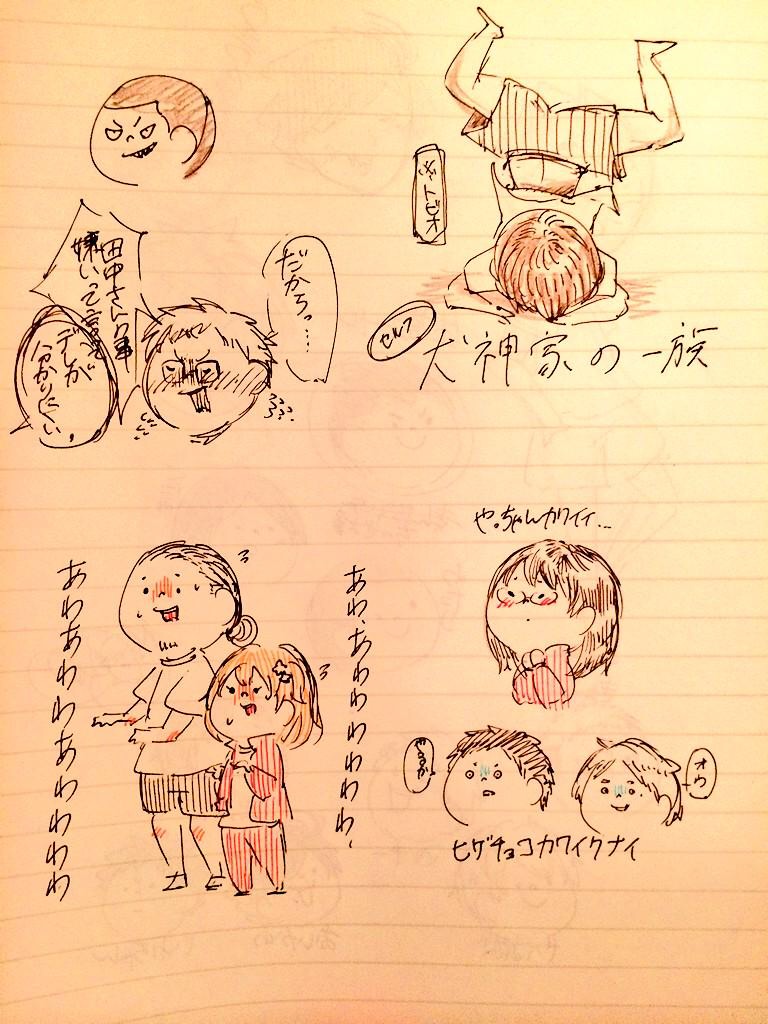 だからっ…
田中さんの事
嫌いって言って
デレが
分かりにくい。
セルフ
犬神家の一族
やっちゃんカワイイ…
あわ、あわわわわわわ、
あわあわわわあわわわわわ
オウ
ヒゲチョコカワイクナイ